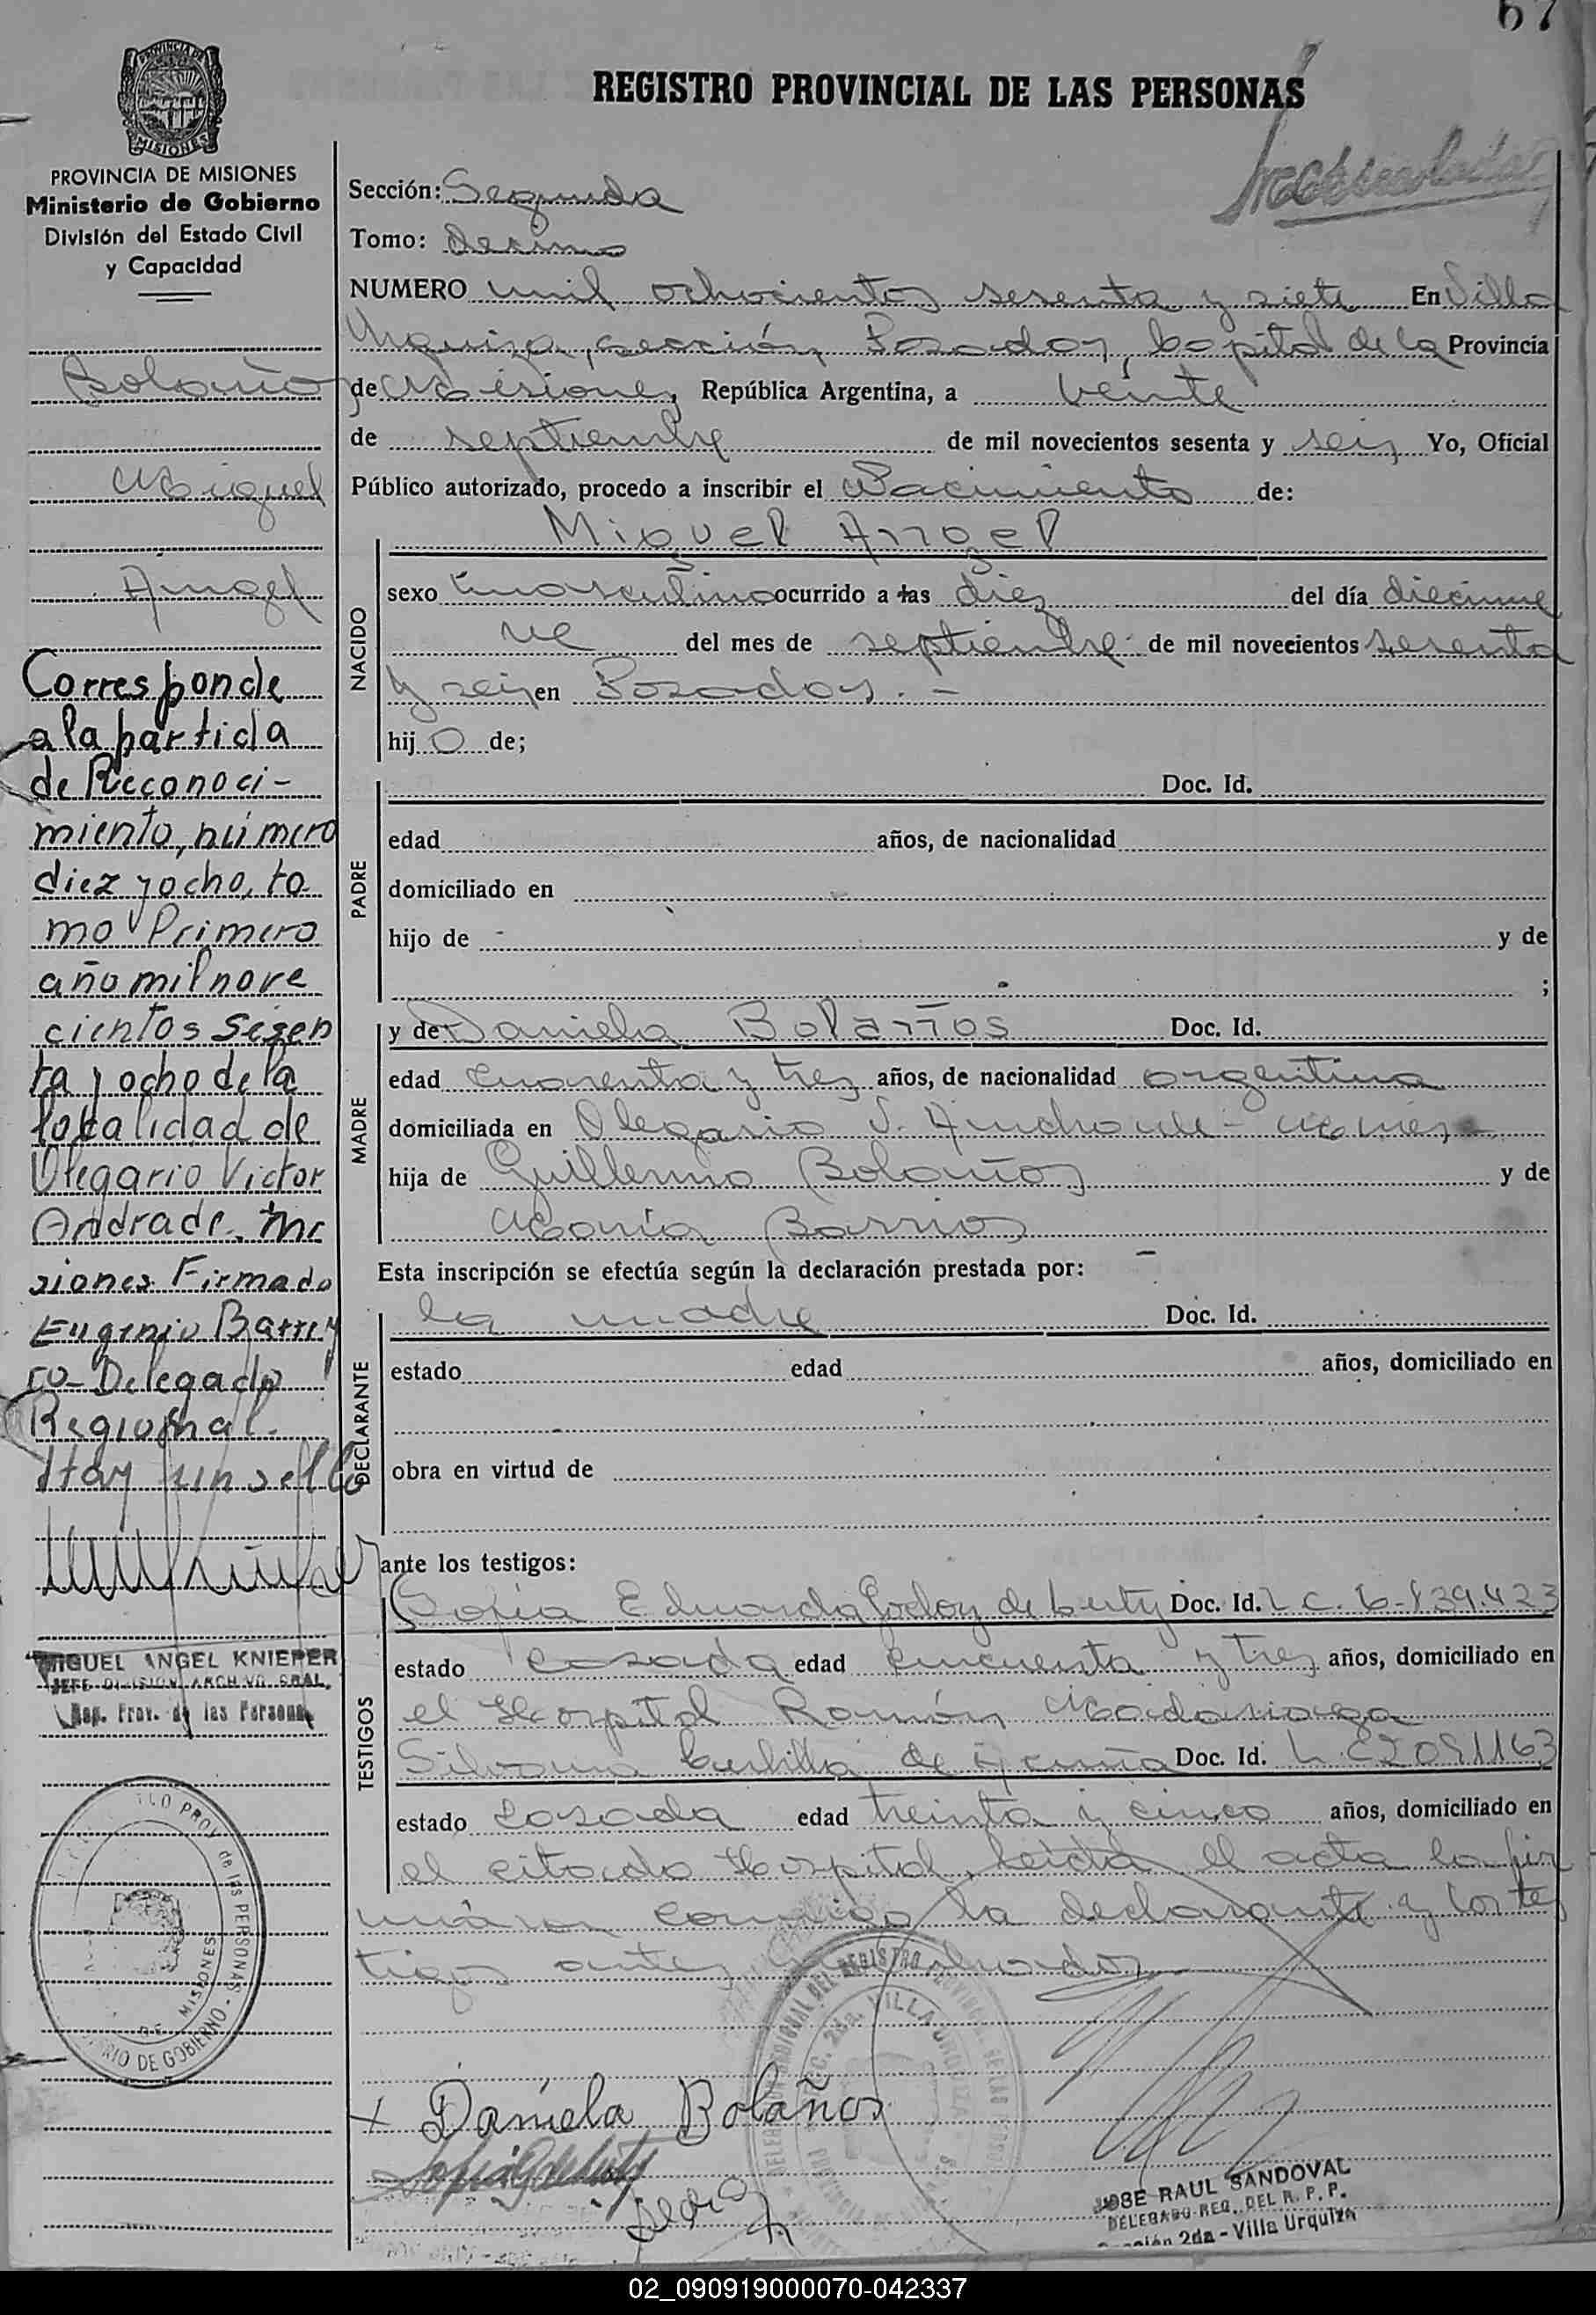 67
REGISTRO PROVINCIAL DE LAS PERSONAS
PROVINCIA DE MISIONES
Ministerio de Gobierno
División del Estado Civil
y Capacidad
Bolaños
Miguel
Angel
Corresponde
a la partida
de Reconoci-
miento, número
diez y ocho, to
mo Primero
año mil nove
cientos sesen
ta y ocho de la
localidad de
Olegario Victor
Andrade. Mi
siones Firmado
Eugenio
co- Delegado
Regional.
Hay un sello
MIGUEL ANGEL KNIEPER
JEFE DIVISION ARCH VO GRAL.
Reg. Prov. de las Personas
Sección: Segunda
Tomo: Decimo
NUMERO mil ochocientos sesenta y siete En Villa
Urquiza, sección Posadas, Capital de la Provincia
de Misiones, República Argentina, a veinte
de septiembre de mil novecientos sesenta y seis Yo, Oficial
Público autorizado, procedo a inscribir el Nacimiento de:
Miguel Angel
NACIDO
sexo masculino ocurrido a las diez del día diecinue
ve del mes de septiembre de mil novecientos sesenta
y seis en Posadas. -
hijo de;
PADRE
Doc. Id.
edad años, de nacionalidad
domiciliado en
hijo de - y de
;
MADRE
y de Daniela Bolaños Doc. Id.
edad cuarenta y tres años, de nacionalidad argentina
domiciliada en Olegario V. Andrade -
hija de Guillermo Bolaños y de
María Barrios
Esta inscripción se efectúa según la declaración prestada por: -
DECLARANTE
la madre Doc. Id.
estado edad años, domiciliado en
obra en virtud de
ante los testigos:
TESTIGOS
Sofia Eduarda Godoy de Doc. Id. L C. 6-839.423
estado casada edad cincuenta y tres años, domiciliado en
el Hospital Ramón Madariaga
Silvana de Acuña Doc. Id. L. C 2091163
estado casada edad treinta y cinco años, domiciliado en
el citado Hospital, leída el acta la fir
maron conmigo la declarante y los tes
tigos antes
Daniela Bolaños
JOSE RAUL SANDOVAL
DELEGADO REG. DEL R. P. P.
Sección 2da - Villa Urquiza
02_090919000070-042337